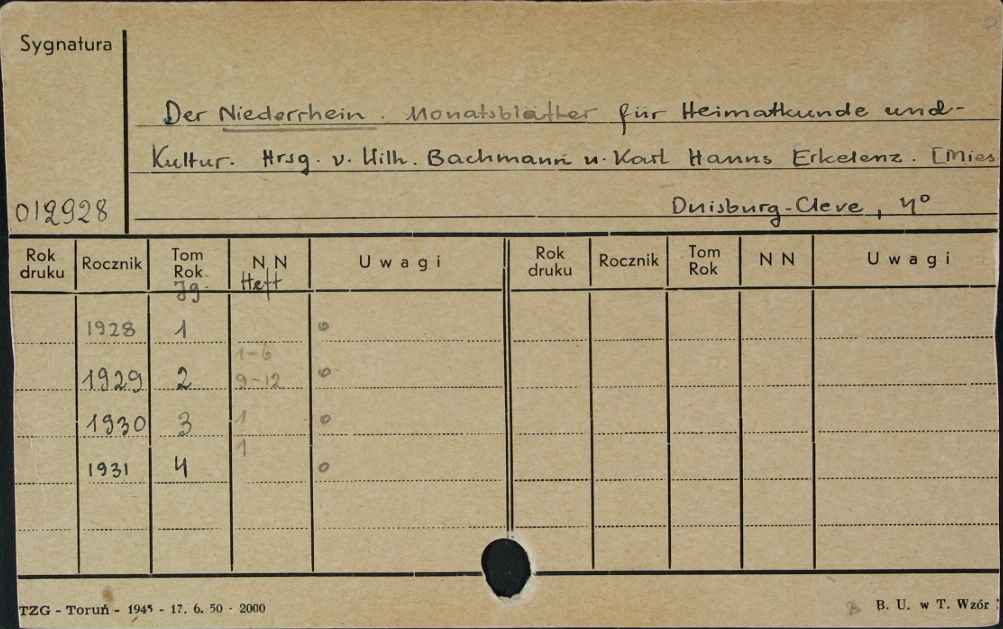 Sygnatura
Der Niederrhein. Monatsblätter für Heimatkunde und-
Kultur. Hrsg. v. Wilh. Bachmann u. Karl Hanns Erkelenz. [Mies
012928
Duisburg-Cleve, 4°
Rok druku Rocznik Tom Rok Jg. N N Heft Uwagi Rok druku Rocznik Tom Rok N N Uwagi
1928 1 o
1-6
1929 2 9-12 o
1930 3 1 o
1
1931 4 o
TZG - Toruń - 1945 - 17. 6. 50 - 2000
B. U. w T. Wzór